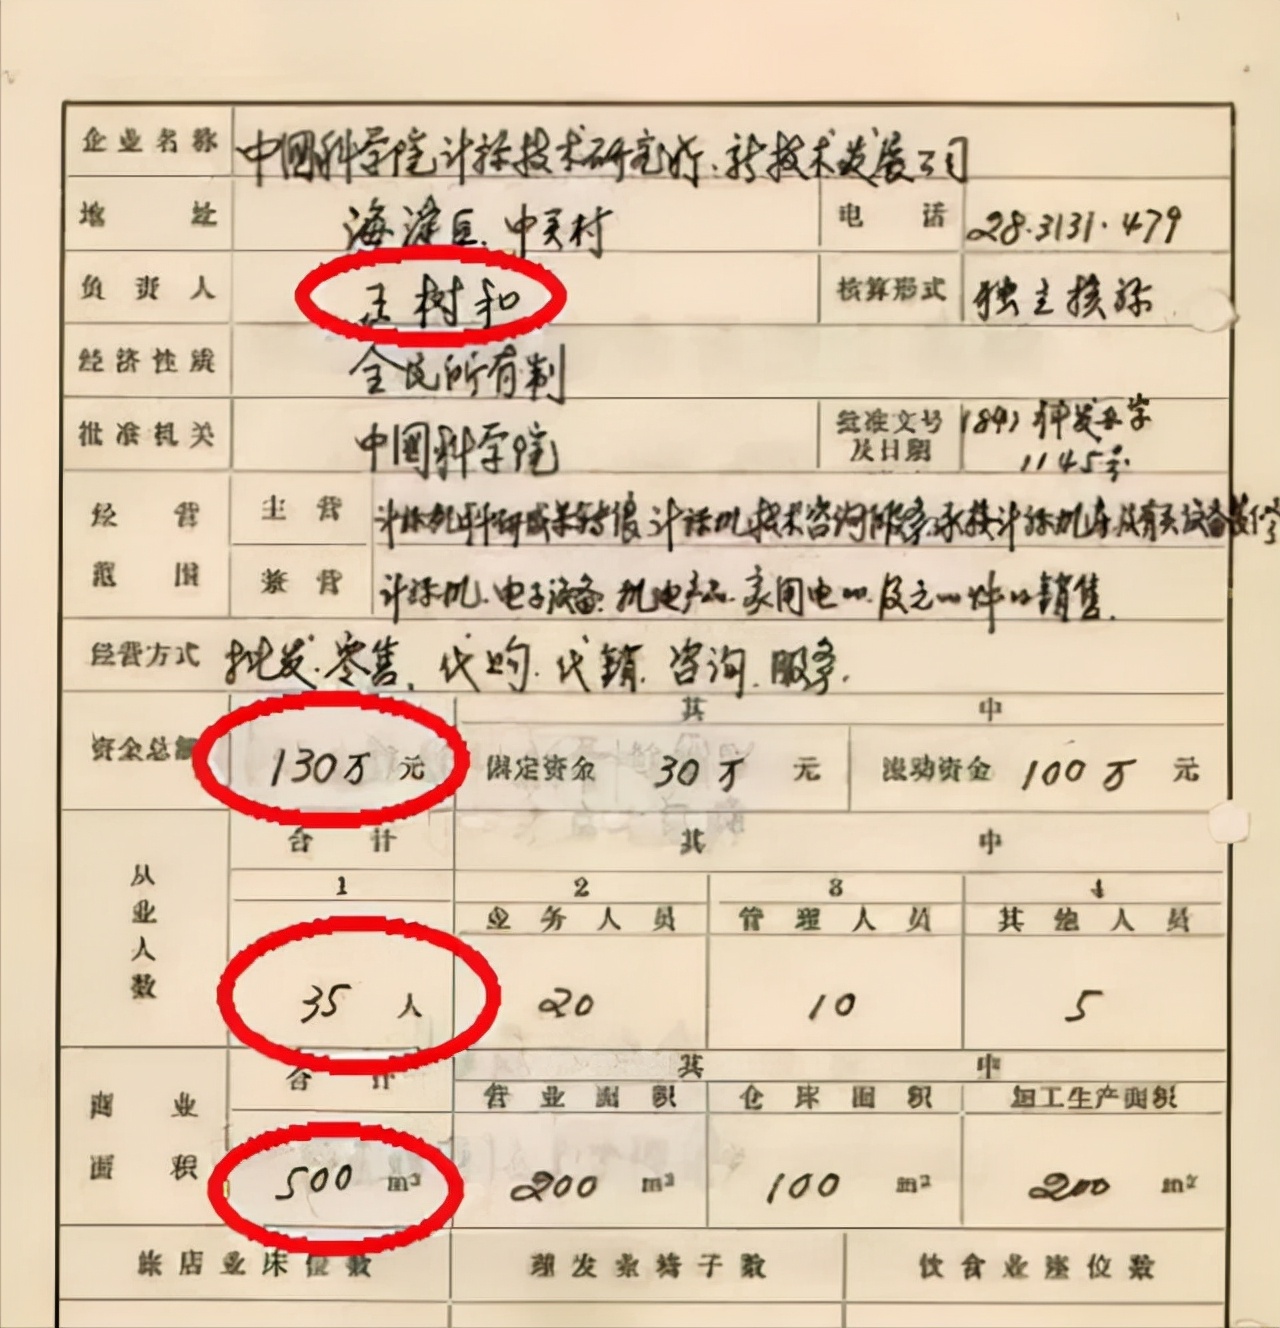 企业名称 中国科学院计标技术研究所.新技术发展公司
地址 海淀区.中关村 电话 28.3131.479
负责人 王树和 核算形式 独立核标
经济性质 全民所有制
批准机关 中国科学院 批准文号
及日期 1145号
经营 主营 计标机科研成果转 计标机技术咨询服务.承接计标机
范围 兼营 计标机.电子设备.机电产品.家用电 及元 件的销售.
经营方式 批发.零售.代购.代销.咨询.服务.
其中
资金总额 130万元 固定资金 30万元 流动资金 100万元
合计 其中
从业人数 1 2 3 4
业务人员 管理人员 其他人员
35人 20 10 5
合计 其中
商业 营业面积 仓库面积 加工生产面积
面积 500 m² 200 m² 100 m² 200 m²
旅店业床位数 理发业椅子数 饮食业座位数